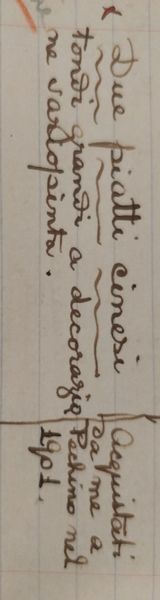 x Due piatti cinesi
tondi grandi a decorazio
ne variopinta.
Acquistati
da me a
Pechino nel
1901.